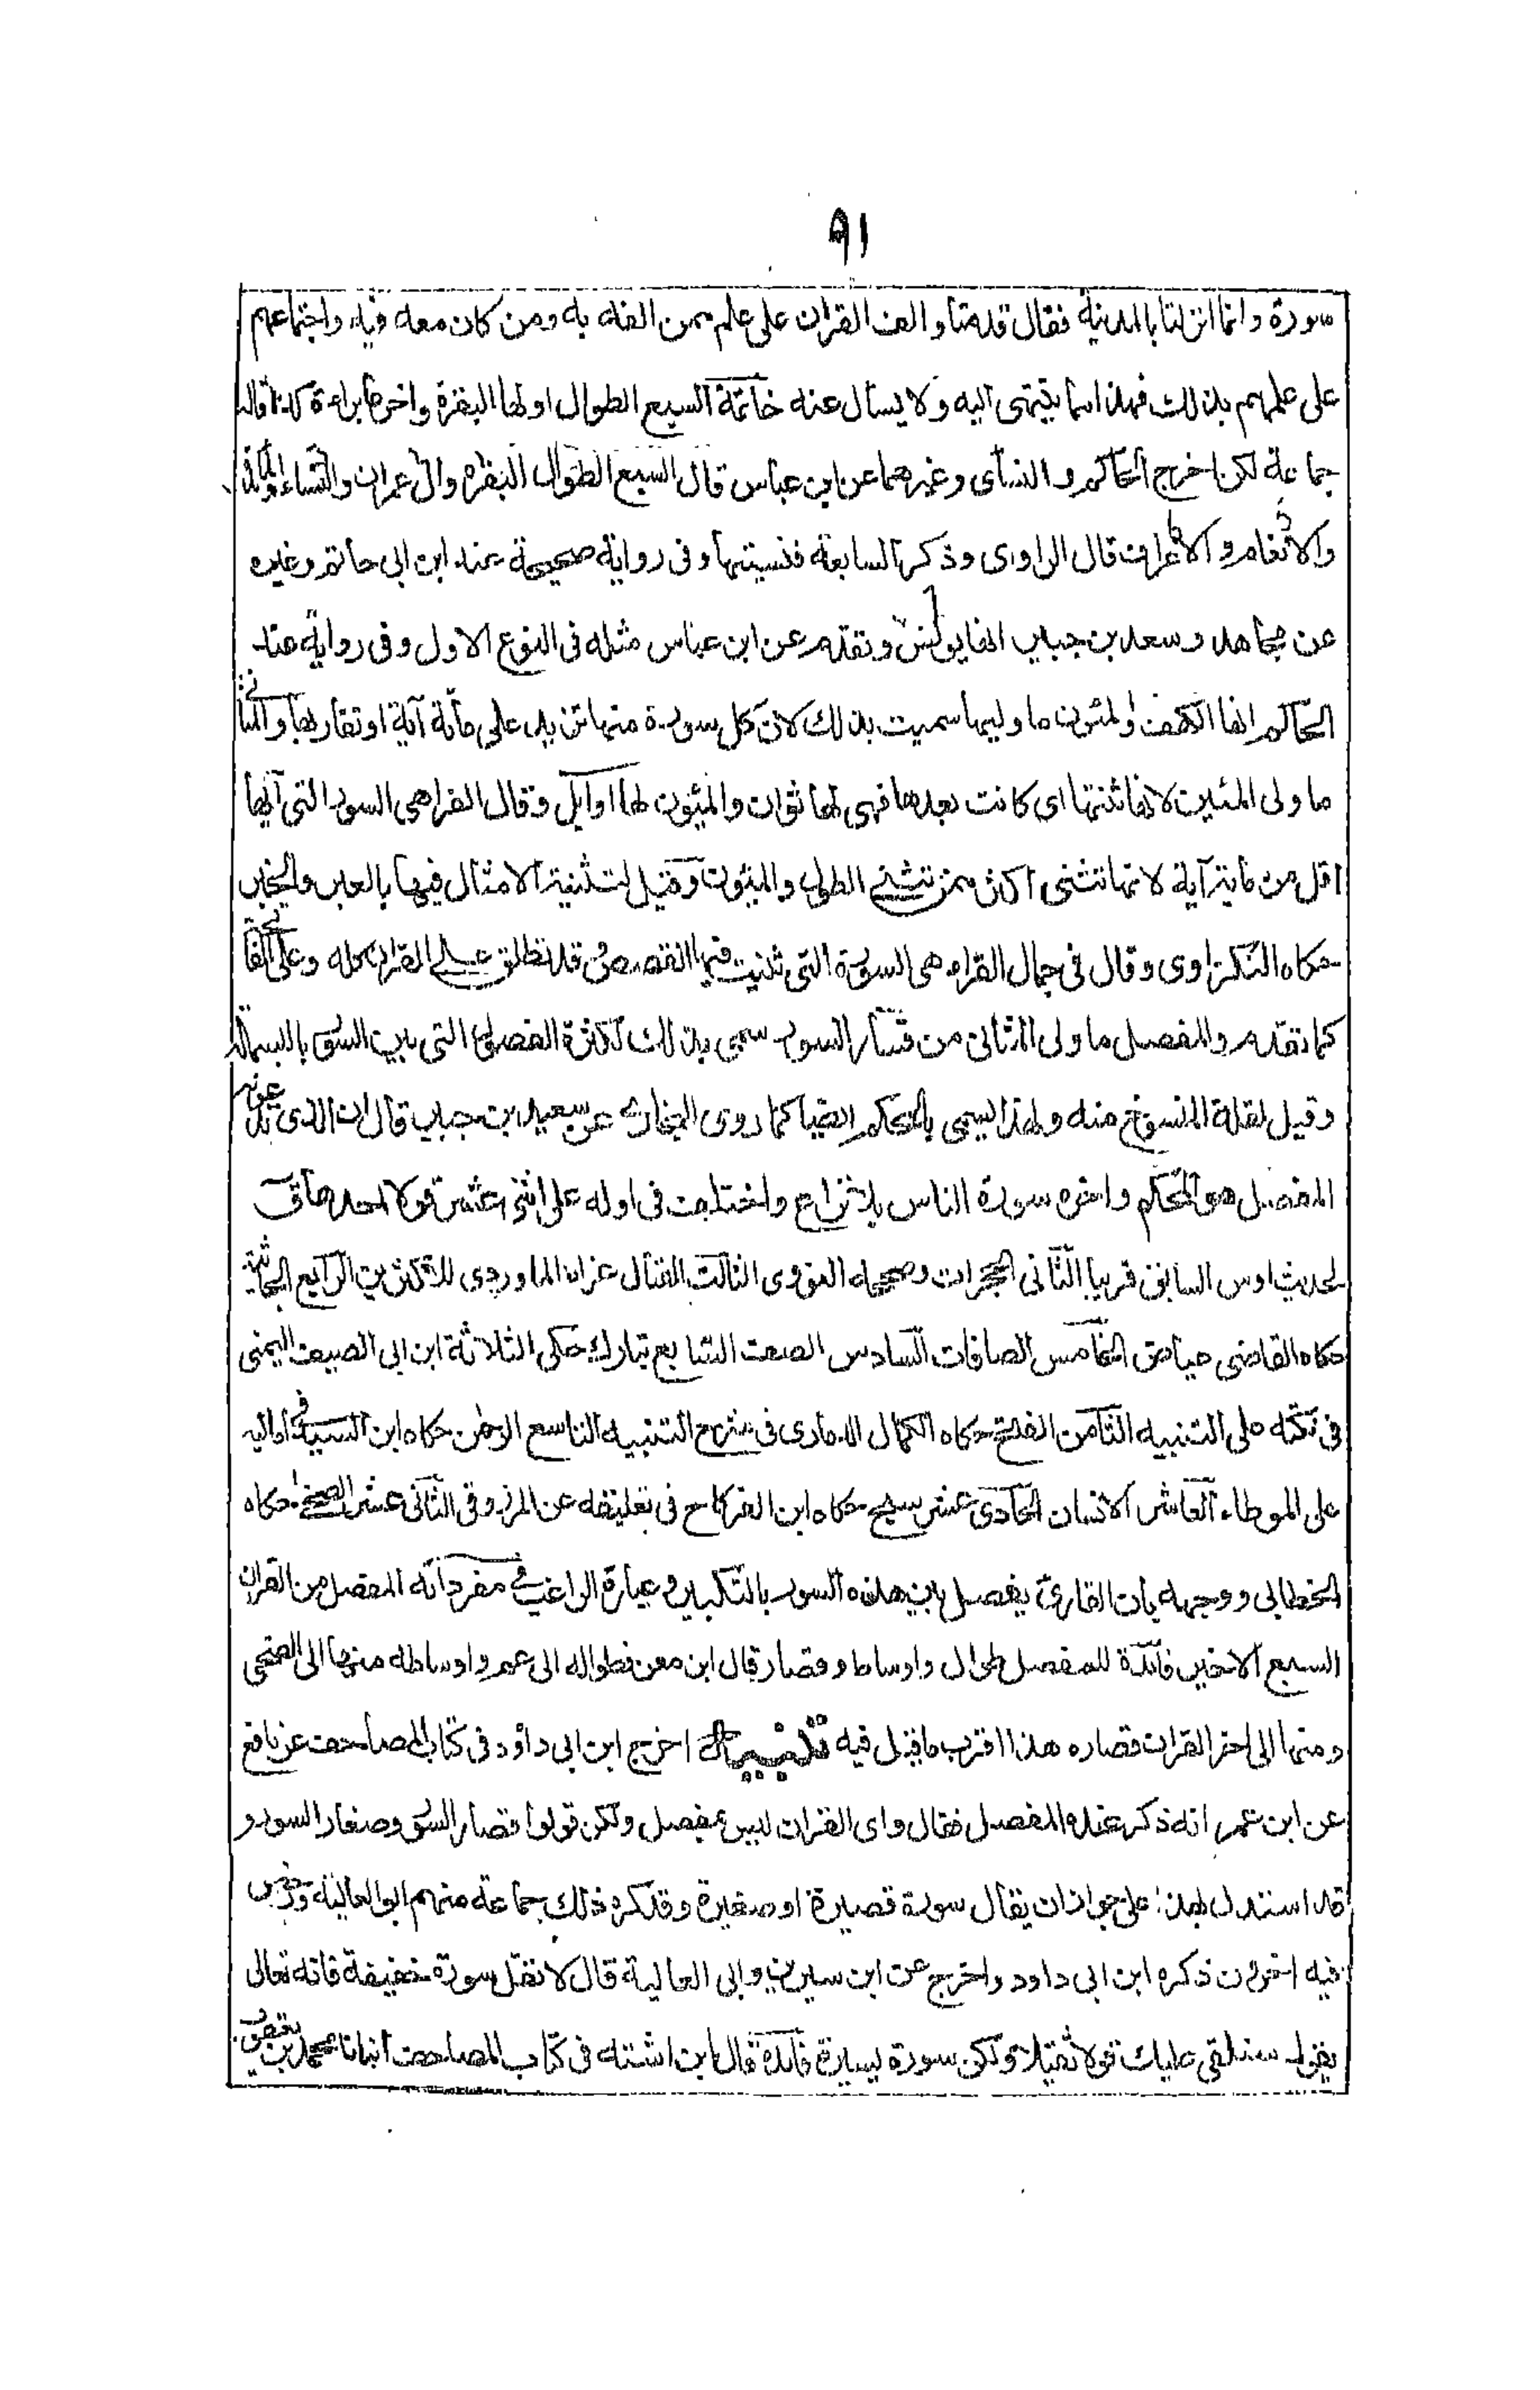 ٩١
سورة وانما انزلتا بالمدينة فقال قدمتا والف القران على علم ممن الفه به ومن كان معه فيه واجتماعهم
على علمهم بذلك فهذا مما ينتهى اليه ولا يسأل عنه خاتمة السبع الطوال اولها البقرة واخرها براءة كذا قاله
جماعة لكن اخرج الحاكم والنسآى وغيرهما عن ابن عباس قال السبع الطوال البقرة وال عمران والنساء والمائدة
والانعام والاعراف قال الراوى وذكر السابعة فنسيتها وفى رواية صحيحة عند ابن ابى حاتم وغيره
عن مجاهد وسعد بن جبير انها يونس وتقدم عن ابن عباس مثله فى النوع الاول وفى رواية عند
الحاكم انها الكهف والمئون ما وليها سميت بذلك لان كل سورة منها تزيد على مأئة آية او تقاربها والمثانى
ما ولى المئين لانها ثنتها اى كانت بعدها فهى لها ثوان والمئون لها اوايل وقال الفرا هى السور التى آيها
اقل من مأية آية لانها تثنى اكثر مما تثنى الطول والمئون وقيل لتثنية الامثال فيها بالعبر والخبر
حكاه النكزاوى وقال فى جمال القراء هى السورة التى ثنيت فيها القصص وقد تطلق على القران كله وعلى الفاتحة
كما تقدم والمفصل ما ولى المثانى من قصار السور سمى بذلك لكثرة الفصول التى بين السور بالبسملة
وقيل لقلة المنسوخ منه ولهذا يسمى بالمحكم ايضا كما روى البخارى عن سعيد بن جبير قال ان الذى تدعونه
المفصل هو المحكم واخره سورة الناس بلا نزاع واختلف فى اوله على اثنى عشر قولا احدها ق
لحديث اوس السابق قريبا الثانى الحجرات وصححه النووى الثالث القتال عزاه الماوردى للاكثرين الرابع الجاثية
حكاه القاضى عياض الخامس الصافات السادس الصف السابع تبارك حكى الثلاثة ابن ابى الصيف اليمنى
فى نكته على التنبيه الثامن الفتح حكاه الكمال الدمارى فى شرح التنبيه التاسع الرحمن حكاه ابن السيد فى اماليه
على الموطاء العاشر الانسان الحادى عشر سبح حكاه ابن الفركاح فى تعليقه عن المرزوقى الثانى عشر الضحى حكاه
الخطابى ووجهه بان القارئ يفصل بين هذه السور بالتكبير وعبارة الراغب فى مفرداته المفصل من القران
السبع الاخير فائدة للمفصل طوال واوساط وقصار قال ابن معن فطواله الى عم واوساطه منها الى الضحى
ومنها الى اخر القران قصاره هذا اقرب ما قيل فيه تنبيه اخرج ابن ابى داؤد فى كتاب المصاحف عن نافع
عن ابن عمر انه ذكر عنده المفصل فقال واى القران ليس بمفصل ولكن قولوا قصار السور وصغار السور و
قد استدل بهذا على جواز ان يقال سورة قصيرة او صغيرة وقد كره ذلك جماعة منهم ابو العالية ورخص
فيه اخرون ذكره ابن ابى داود واخرج عن ابن سيرين وابى العالية قال لا تقل سورة خفيفة فانه تعالى
يقول سنلقى عليك قولا ثقيلا ولكن سورة يسيرة فائدة قال ابن اشته فى كتاب المصاحف انبانا محمد بن يعقوب